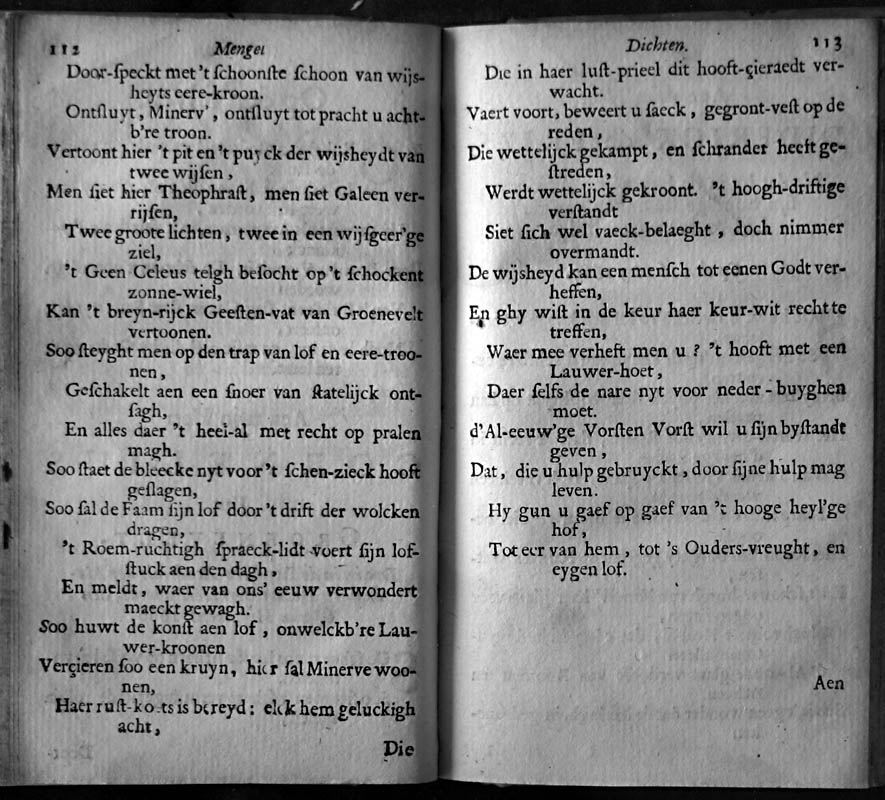 112 Mengel
Door-ſpeckt met 't ſchoonſte ſchoon van wijs-
heyts eere-kroon.
Ontſluyt, Minerv', ontſluyt tot pracht u acht-
b're troon.
Vertoont hier 't pit en 't puyck der wijsheydt van
twee wijſen,
Men ſiet hier Theophraſt, men ſiet Galeen ver-
rijſen,
Twee groote lichten, twee in een wijſgeer'ge
ziel,
't Geen Celeus telgh beſocht op 't ſchockent
zonne-wiel,
Kan 't breyn-rijck Geeſten-vat van Groenevelt
vertoonen.
Soo ſteyght men op den trap van lof en eere-troo-
nen,
Geſchakelt aen een ſnoer van ſtatelijck ont-
ſagh,
En alles daer 't heel-al met recht op pralen
magh.
Soo ſtaet de bleecke nyt voor 't ſchen-zieck hooft
geſlagen,
Soo ſal de Faam ſijn lof door 't drift der wolcken
dragen,
't Roem-ruchtigh ſpraeck-lidt voert ſijn lof-
ſtuck aen den dagh,
En meldt, waer van ons' eeuw verwondert
maeckt gewagh.
Soo huwt de konſt aen lof, onwelckb're Lau-
wer-kroonen
Verçieren ſoo een kruyn, hier ſal Minerve woo-
nen,
Haer ruſt-koets is bereyd: elck hem geluckigh
acht,
Die
Dichten. 113
Die in haer luſt-prieel dit hooft-çieraedt ver-
wacht.
Vaert voort, beweert u ſaeck, gegront-veſt op de
reden,
Die wettelijck gekampt, en ſchrander heeft ge-
ſtreden,
Werdt wettelijck gekroont. 't hoogh-driftige
verſtandt
Siet ſich wel vaeck-belaeght, doch nimmer
overmandt.
De wijsheyd kan een menſch tot eenen Godt ver-
heffen,
En ghy wiſt in de keur haer keur-wit recht te
treffen,
Waer mee verheft men u? 't hooft met een
Lauwer-hoet,
Daer ſelfs de nare nyt voor neder-buyghen
moet.
d'Al-eeuw'ge Vorſten Vorſt wil u ſijn byſtandt
geven,
Dat, die u hulp gebruyckt, door ſijne hulp mag
leven.
Hy gun u gaef op gaef van 't hooge heyl'ge
hof,
Tot eer van hem, tot 's Ouders-vreught, en
eygen lof.
Aen